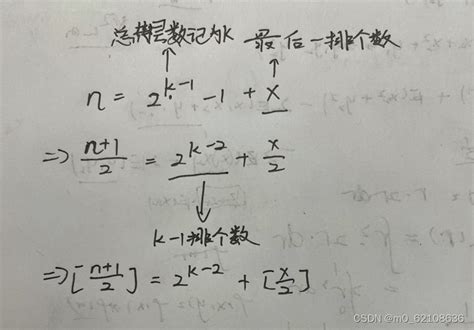 总树层数记为k 最后一排个数
n = 2^{k-1} - 1 + x
=> \frac{n+1}{2} = 2^{k-2} + \frac{x}{2}
k-1排个数
=> [\frac{n+1}{2}] = 2^{k-2} + [\frac{x}{2}]
CSDN @m0_62108636